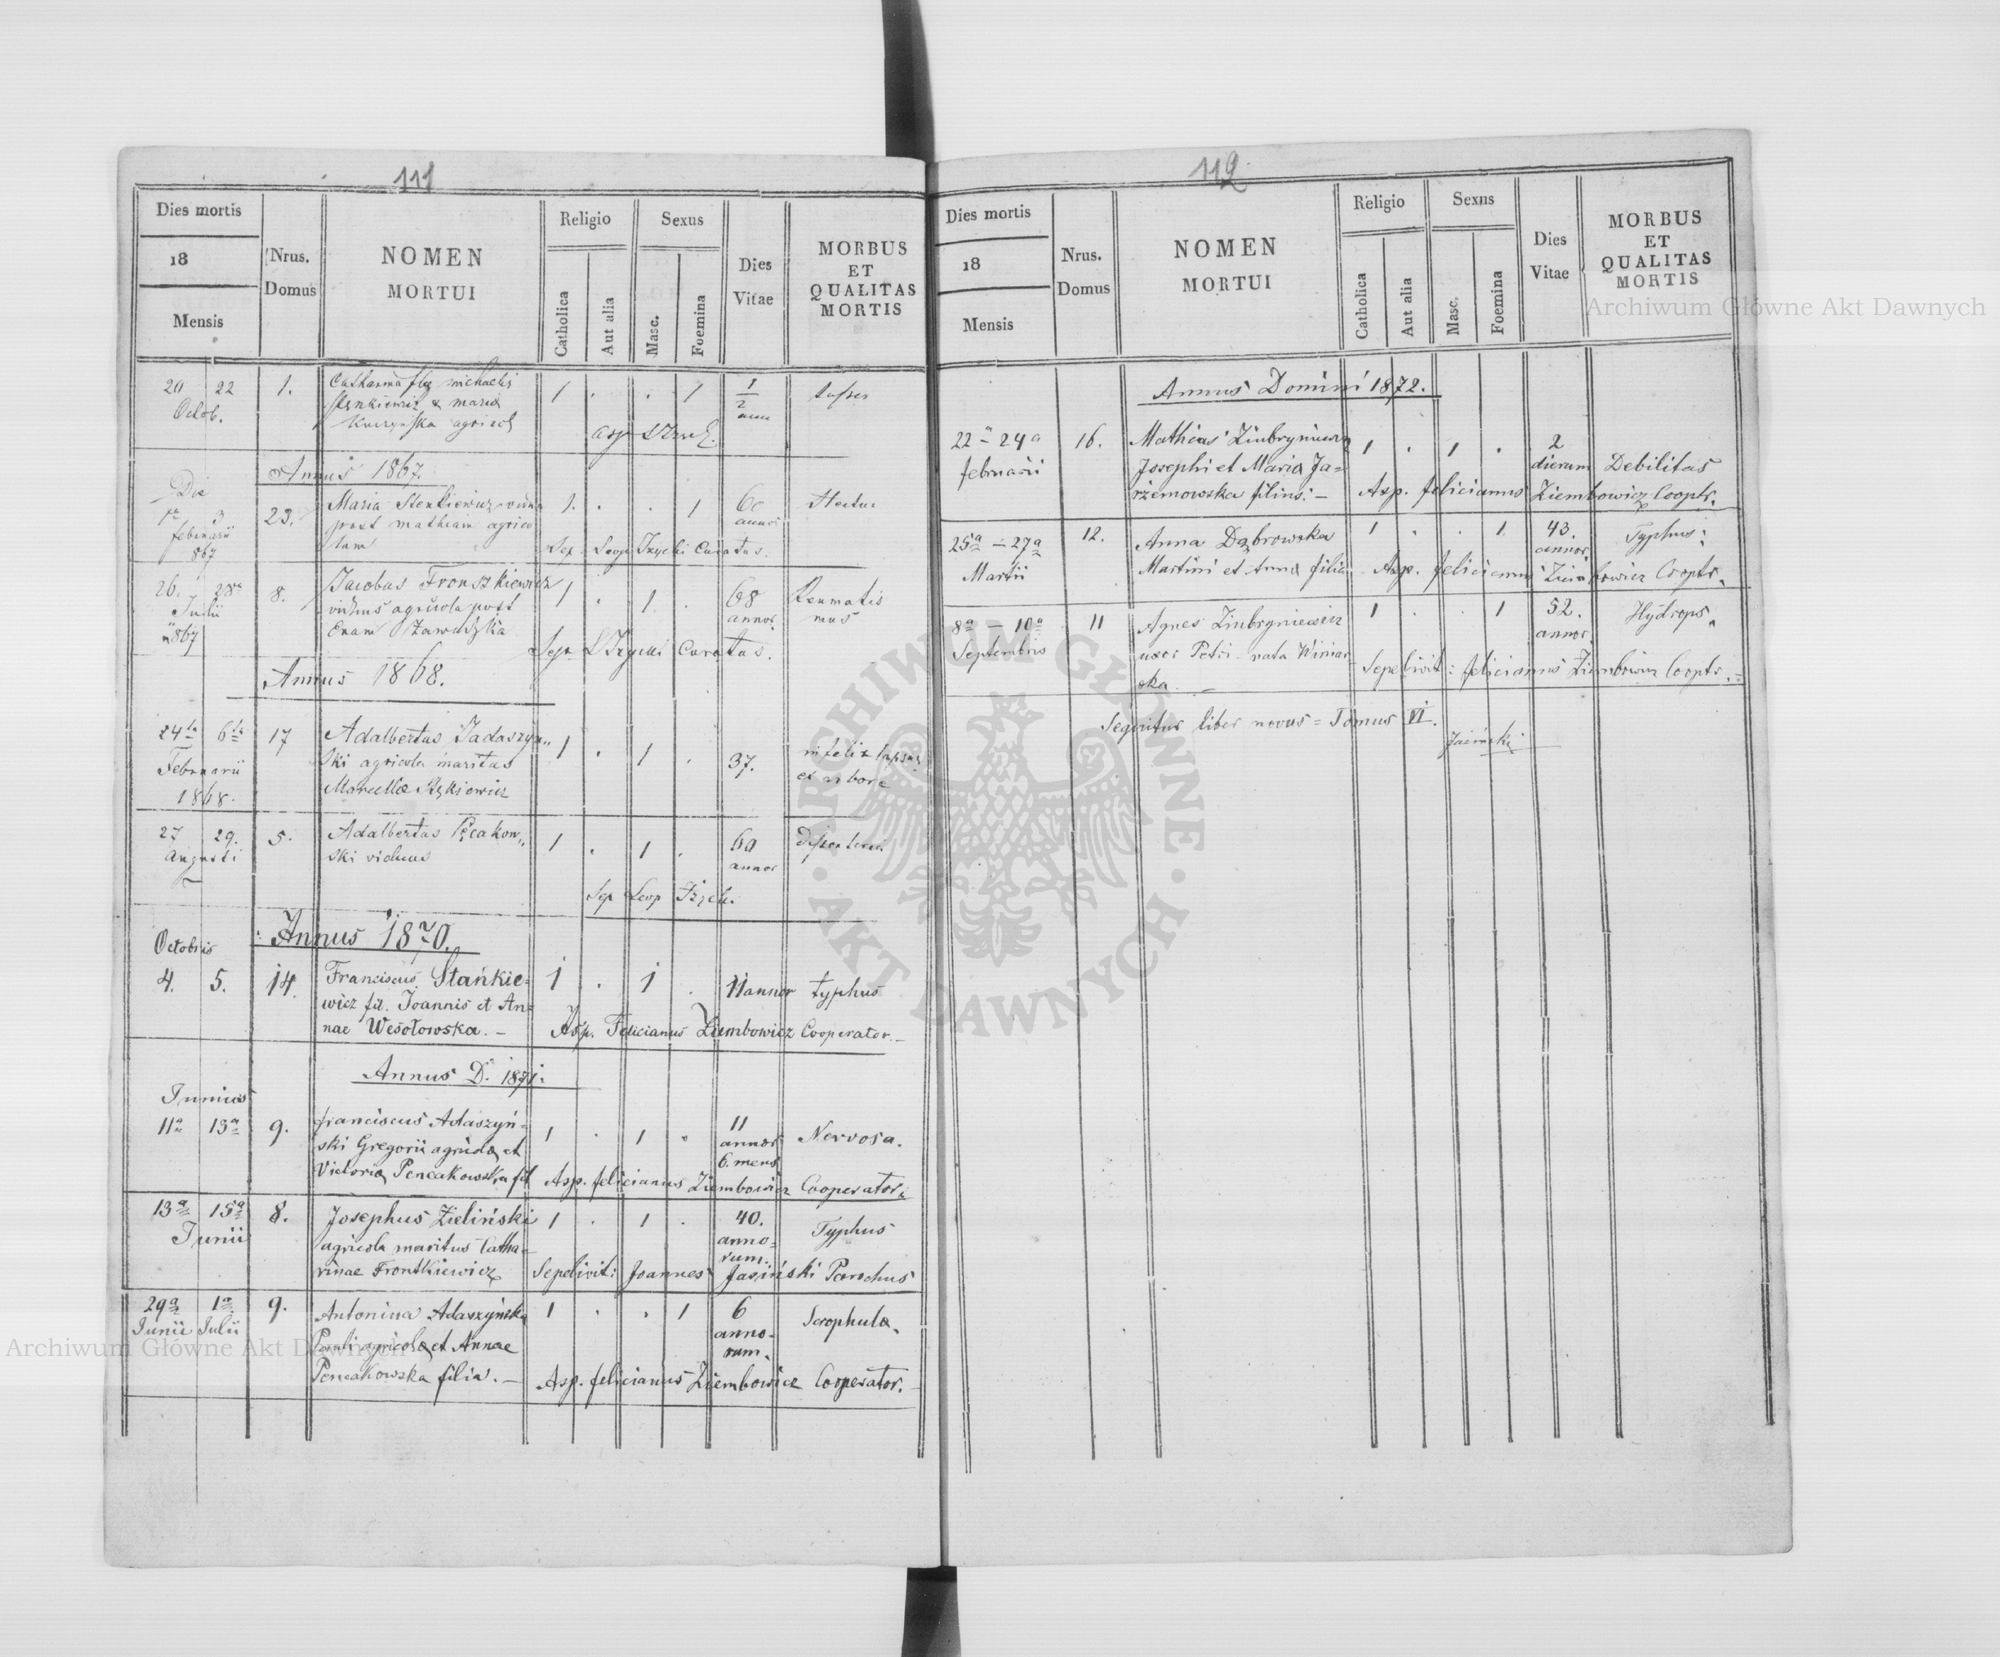 111
Dies mortis
18
Mensis
Nrus.
Domus
NOMEN
MORTUI
Religio
Catholica
Aut alia
Sexus
Masc.
Foemina
Dies
Vitae
MORBUS
ET
QUALITAS
MORTIS
20 22 1. Catharina michaelis 1 . . 1 1/2
Octob. & maria
agricol
Annus 1867.
Die
23. Maria Stenkiewicz 1. . . 1 60
1a 3 post mathiam agrico annor
februarii lam Sep. Leop Izycki Curatus.
867
26. 28a 8. Jacobus Fronszkiewicz 1 . 1 . 68 Reumatis
Julii viduus agricola post annor. mus
867 Sep. Curatus.
Annus 1868.
24ta 6ta 17 Adalbertus Jadaszyn„ 1 . 1 . 37. infelix lapsus
Februarii ski agricola maritus ex arbore
1868.
27 29. 5. Adalbertus 1 . 1 . 60
Augusti ski viduus annor
Sep Leop
Annus 1870.
Octobris
4. 5. 14. Franciscus Stańkie= 1 . 1 . 11 annor typhus
wicz fil. Joannis et An=
nae Wesołowska. – Asp. Felicianus Ziembowicz Cooperator.–
Annus D. 1871.
Junius
11a 13a 9. franciscus Adaszyń- 1 . 1 . 11 Nervosa.
ski Gregorii agricolae et annor
6. mens
Victoria Pencakowska fil Asp. felicianus Ziembowicz Cooperator.
13a 15a 8. Josephus Zieliński 1 . 1 . 40. Typhus
Junii agricola maritus Catha- anno-
rum.
rinae Frontkiewicz Sepelivit: Joannes Jasiński Parochus
29a 1a 9. Antonina Adaszyńska 1 . . 1 6 Scrophulae.
Junii Julii Pauli agricolae et Annae anno-
rum.
Pencakowska filia. – Asp. felicianus Ziembowicz Cooperator.
112
Dies mortis
18
Mensis
Nrus.
Domus
NOMEN
MORTUI
Religio
Catholica
Aut alia
Sexus
Masc.
Foemina
Dies
Vitae
MORBUS
ET
QUALITAS
MORTIS
Annus Domini 1872.
22a – 24a 16. Mathias Zinbryniewicz 1 . 1 . 2
februarii Josephi et Maria Ja- dierum Debilitas
rzemowska filius: – Asp. felicianus Ziembowicz Cooptr.
25a – 27a 12. Anna Dąbrowska 1 . . 1 43. Typhus:
annor.
Martii Martini et Annae filia Asp. felicianus Ziembowicz Cooptr.
8a – 10a 11 Agnes Zinbryniewicz 1 . . 1 52. Hydrops.
Septembris uxor Petri nata Winiar annor.
ska. – Sepelivit: felicianus Ziembowicz Cooptr.
Sequitur liber novus = Tomus VI.
Jasiński
Archiwum Główne Akt Dawnych
Archiwum Główne Akt Dawnych
ARCHIWUM GŁÓWNE
· AKT DAWNYCH ·